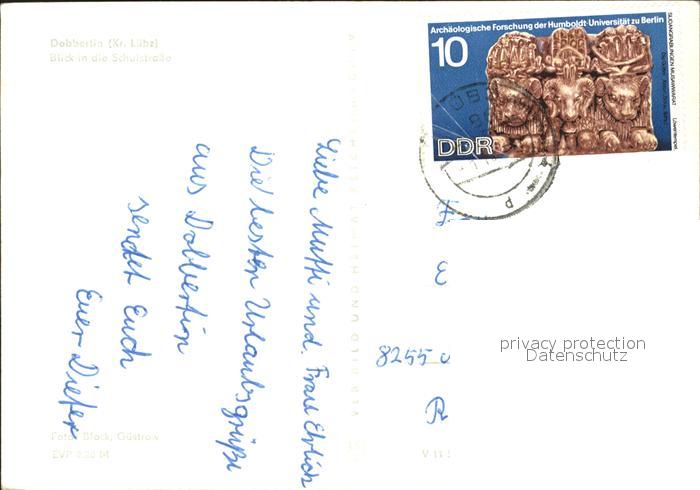 Dobbertin (Kr. Lübz)
Blick in die Schulstraße
Archäologische Forschung der Humboldt-Universität zu Berlin
10
DDR
SUDANGRABUNGEN MUSAWWARAT
Löwentempel
Liebe Mutti und Frau Ehrlich
Die besten Urlaubsgrüße
aus Dobbertin
sendet Euch
Euer Dieter
8255
privacy protection
Datenschutz
Foto: Block, Güstrow
EVP 0,20 M
V 11